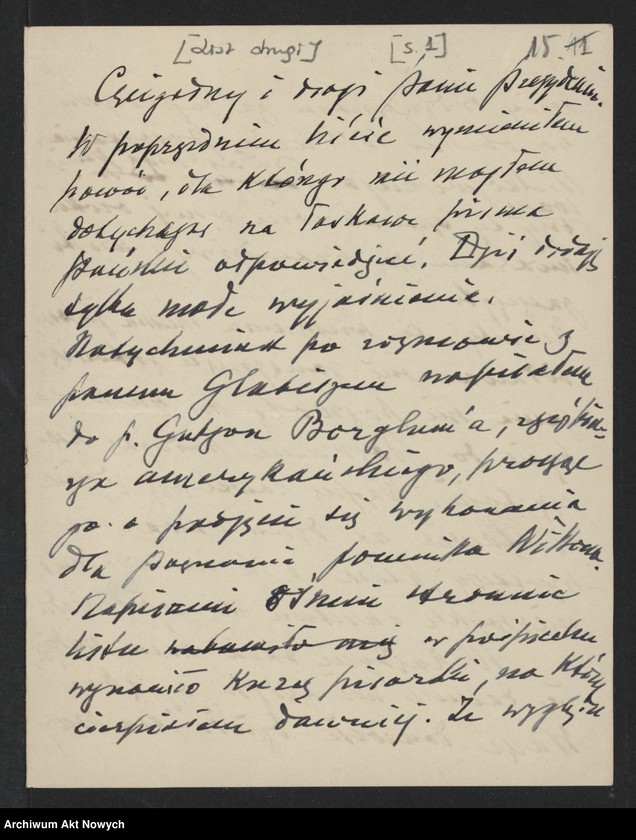 [List drugi] [s. 1] 15.
Czcigodny i drogi Panie Prezydencie.
W poprzednim liście wymieniłem
powód, dla którego nie mogłem
dotychczas na łaskawe pisma
Pańskie odpowiedzieć. Dziś dodaję
tylko małe wyjaśnienie.
Natychmiast po rozmowie z
panem Głabiszem napisałem
do p. Gutzon Borglum'a, rzeźbia-
rza amerykańskiego, prosząc
go o podjęcie się wykonania
dla Poznania pomnika Wilsona.
Napisanie 8 stronnic
listu nabawiło mię w pośpiechu
wznowiło kurcz pisarski, na który
cierpiałem dawniej. Ze względu
Archiwum Akt Nowych